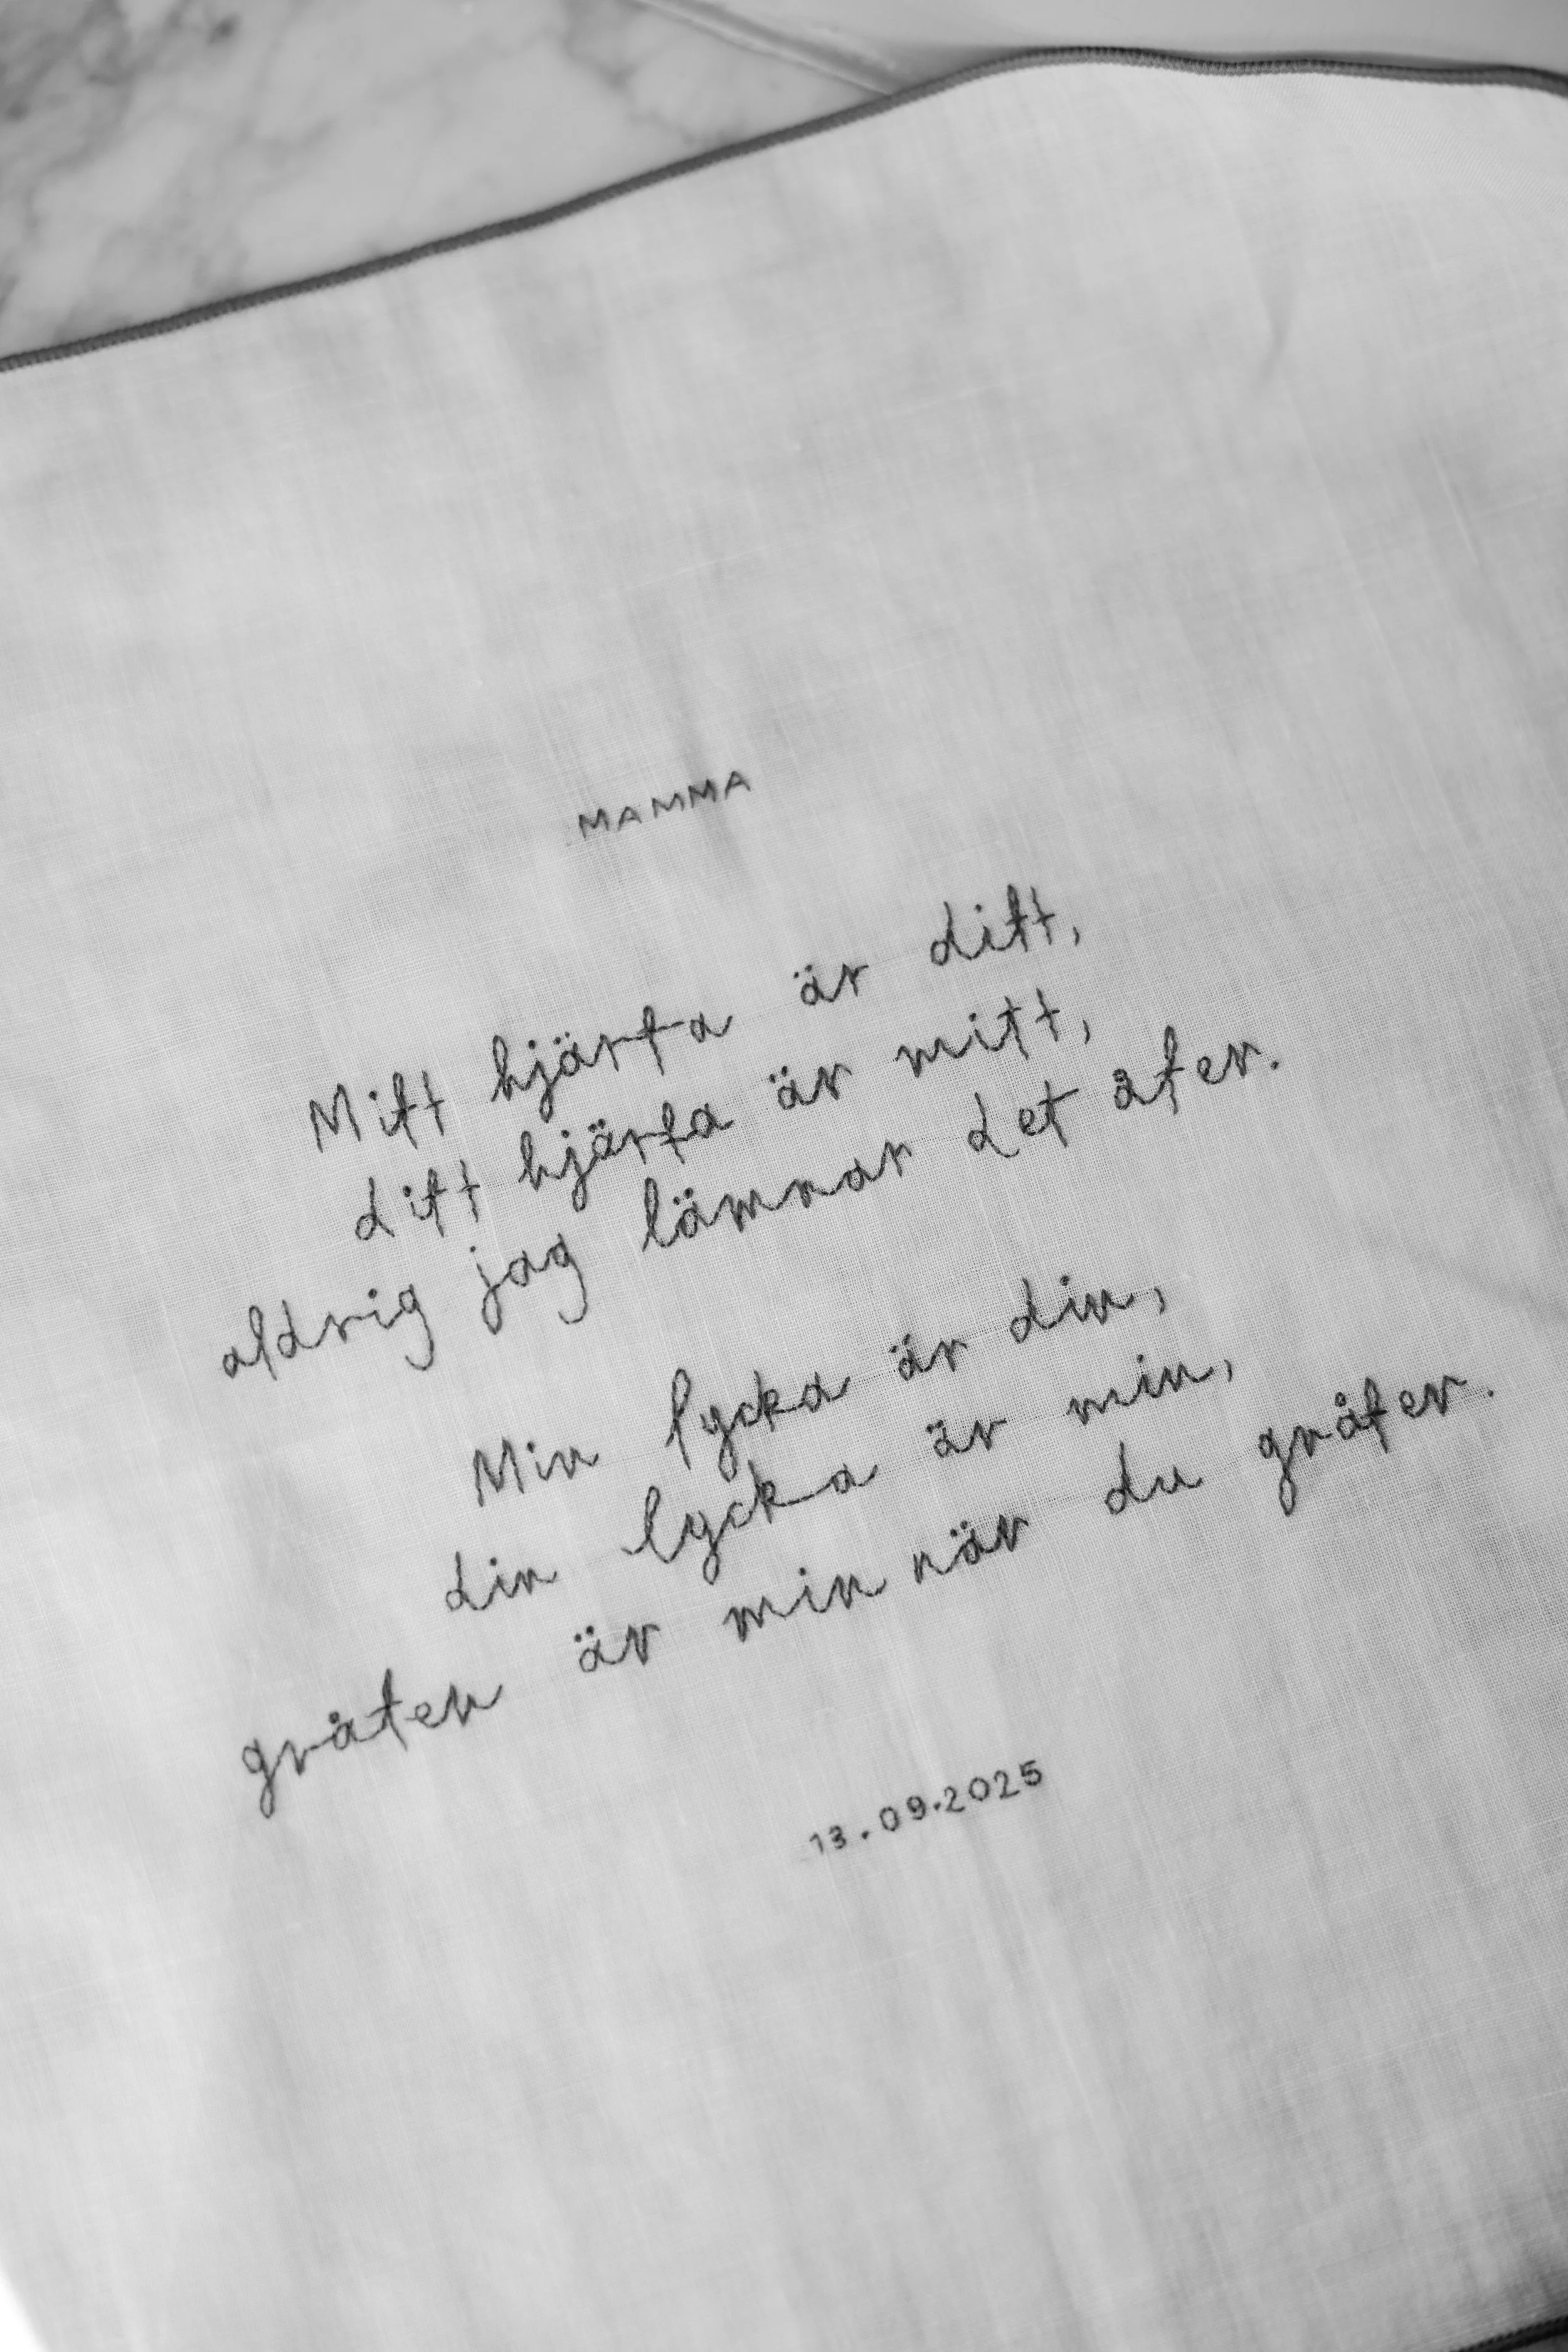 MAMMA
Mitt hjärta är ditt,
ditt hjärta är mitt,
aldrig jag lämnar det åter.
Min lycka är din,
din lycka är min,
gråten är min när du gråter.
13.09.2025